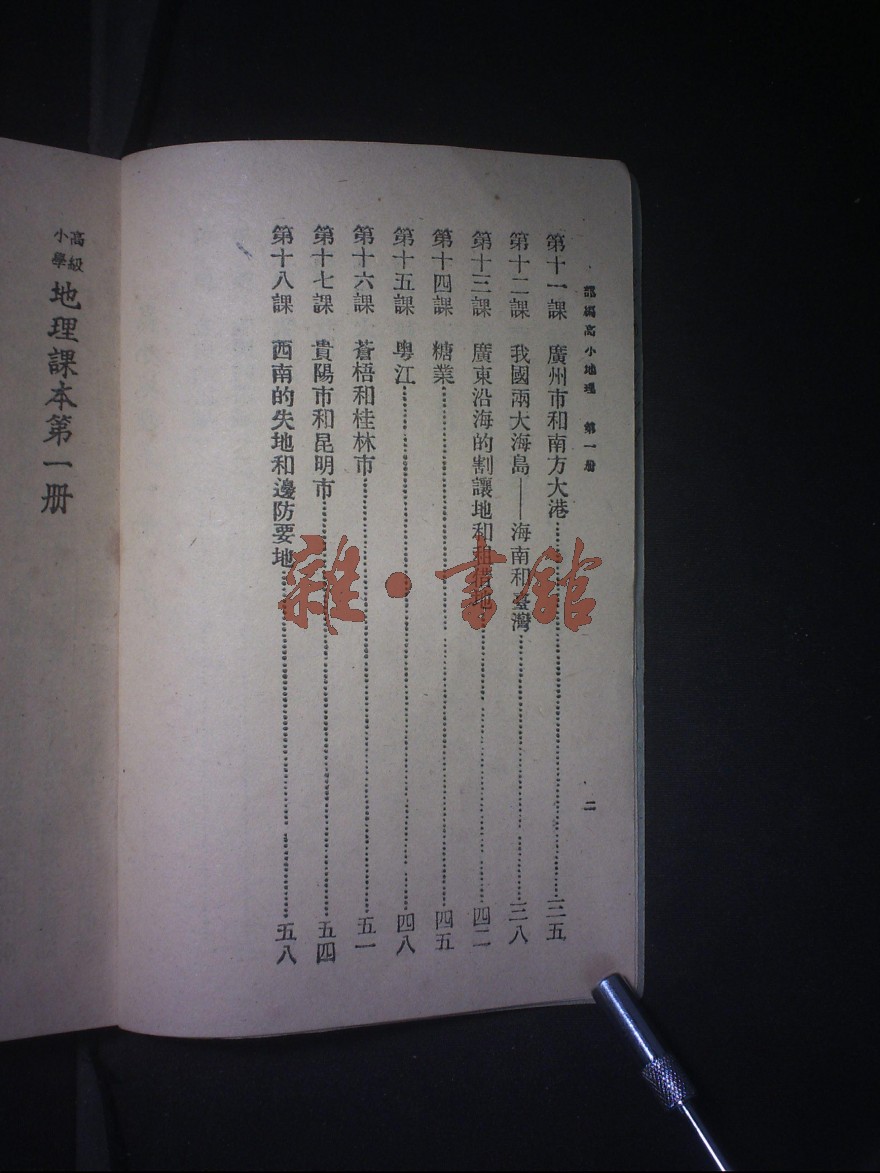 部編高小地理 第一册
二
第十一課 廣州市和南方大港……三五
第十二課 我國兩大海島——海南和臺灣……三八
第十三課 廣東沿海的割讓地和租借地……四二
第十四課 糖業……四五
第十五課 粵江……四八
第十六課 蒼梧和桂林市……五一
第十七課 貴陽市和昆明市……五四
第十八課 西南的失地和邊防要地……五八
高級小學 地理課本第一册
雜·書館